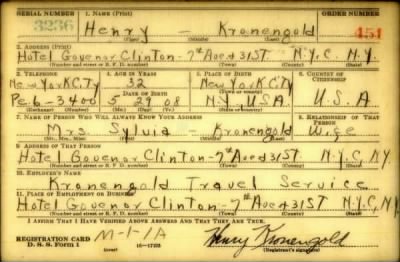 SERIAL NUMBER 1. NAME (Print) ORDER NUMBER
3236 Henry - Kronengold 451
(First) (Middle) (Last)
2. ADDRESS (Print)
Hotel Govenor Clinton - 7th Ave & 31ST N.Y.C. N.Y.
(Number and street or R. F. D. number) (Town) (County) (State)
3. TELEPHONE 4. AGE IN YEARS 5. PLACE OF BIRTH 6. COUNTRY OF CITIZENSHIP
New York City 32 New York City
DATE OF BIRTH
Pe. 6-3400 5 29 08 N.Y., U.S.A. U.S.A
(Exchange) (Number) (Mo.) (Day) (Yr.) (State or country)
7. NAME OF PERSON WHO WILL ALWAYS KNOW YOUR ADDRESS 8. RELATIONSHIP OF THAT PERSON
Mrs. Sylvia - Kronengold Wife
(Mr., Mrs., Miss) (First) (Middle) (Last)
9. ADDRESS OF THAT PERSON
Hotel Govenor Clinton - 7th Ave & 31ST N.Y.C, N.Y.
(Number and street or R. F. D. number) (Town) (County) (State)
10. EMPLOYER'S NAME
Kronengold Travel Service
11. PLACE OF EMPLOYMENT OR BUSINESS
Hotel Govenor Clinton - 7th Ave & 31ST N.Y.C, N.Y.
(Number and street or R. F. D. number) (Town) (County) (State)
I AFFIRM THAT I HAVE VERIFIED ABOVE ANSWERS AND THAT THEY ARE TRUE.
REGISTRATION CARD M-1-1A Henry Kronengold
D. S. S. FORM 1 (over) 16-17105 (Registrant's signature)